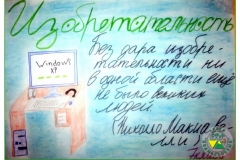 Изобретательность
Windows
XP
Без дара изобре-
тательности ни
в одной области ещё
не было великих
людей
(Никколо Макиаве-
лли)